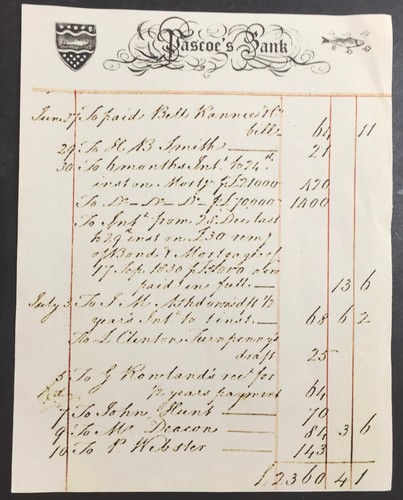 Pascoe's Bank
June 27 To paid Bell Rannie & Co
bill 64 11
29 To H B Smith 21
30 To 6 months Int. to 24th
inst on Mortg. of £21000 420
To Do Do Do of £70000 1400
To Int. from 25 Dec last
to 29 inst on £30 rem.
of Bond & Mortgage of
17 Sep. 1830 of £1000 now
paid in full 13 6
July 3 To J. M. Ashdowne's ½
year's Int. to 1 inst. 68 6 2
To L Clinton Turnpenny's
draft 25
5 To G Rowland's rect for
½ years payment 64
7 To John Hunt 70
9 To Mr Deacon 84 3 6
10 To P Webster 143
£2360 4 1